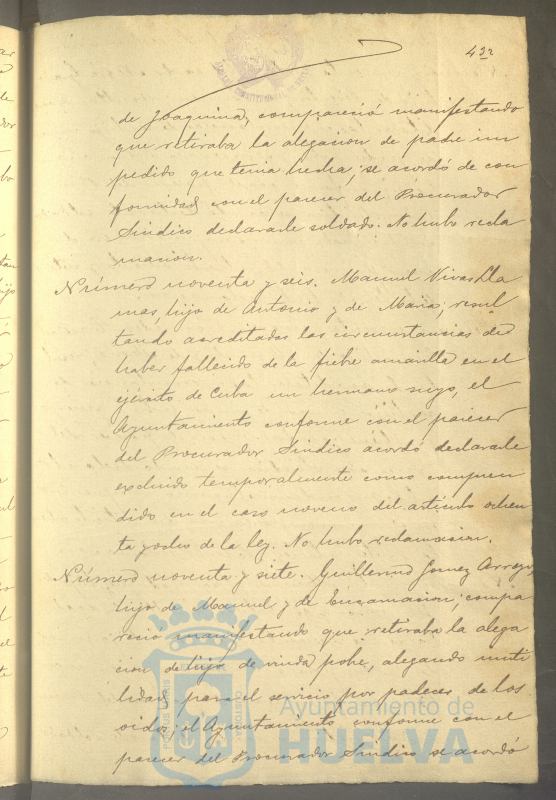 43r
de Joaquina, compareció manifestando
que retiraba la alegacion de padre im
pedido que tenia hecha; se acordó de con
formidad con el parecer del Procurador
Sindico declararle soldado. No hubo recla
macion.
Número noventa y seis. Manuel Vivas Lla
mas, hijo de Antonio y de Maria; resul
tando acreditadas las circunstancias de
haber fallecido de la fiebre amarilla en el
ejército de Cuba un hermano suyo, el
Ayuntamiento conforme con el parecer
del Procurador Sindico acordó declararle
excluido temporalmente como compren
dido en el caso noveno del artículo ochen
ta y ocho de la ley. No hubo reclamacion.
Número noventa y siete. Guillermo Gomez Arroyo,
hijo de Manuel y de Encarnacion; compa
reció manifestando que retiraba la alega
cion de hijo de viuda pobre, alegando inuti
lidad para el servicio por padecer de los
oidos; el Ayuntamiento conforme con el
parecer del Procurador Sindico se acordó
Ayuntamiento de
HUELVA